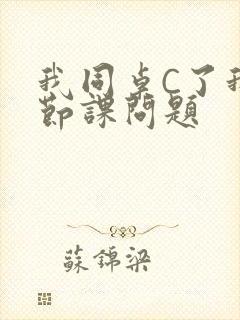 我同桌C了我
節課問題
蘇錦梁